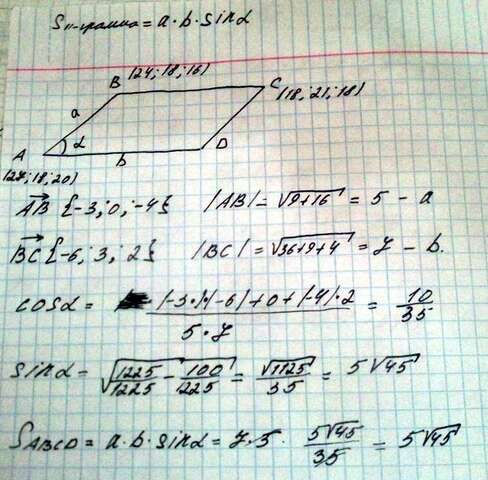 Sп-грамма = a · b · sinα
B (24; 18; 16)
C (18; 21; 18)
a
α
A b D
(27; 18; 20)
AB {-3; 0; -4} |AB| = √9+16 = 5 - a
BC {-6; 3; 2} |BC| = √36+9+4 = 7 - b.
cosα = (-3)·(-6)+0+(-4)·2 / 5·7 = 10/35
sinα = √1225/1225 - 100/1225 = √1125/35 = 5√45
SABCD = a·b·sinα = 7·5· 5√45/35 = 5√45